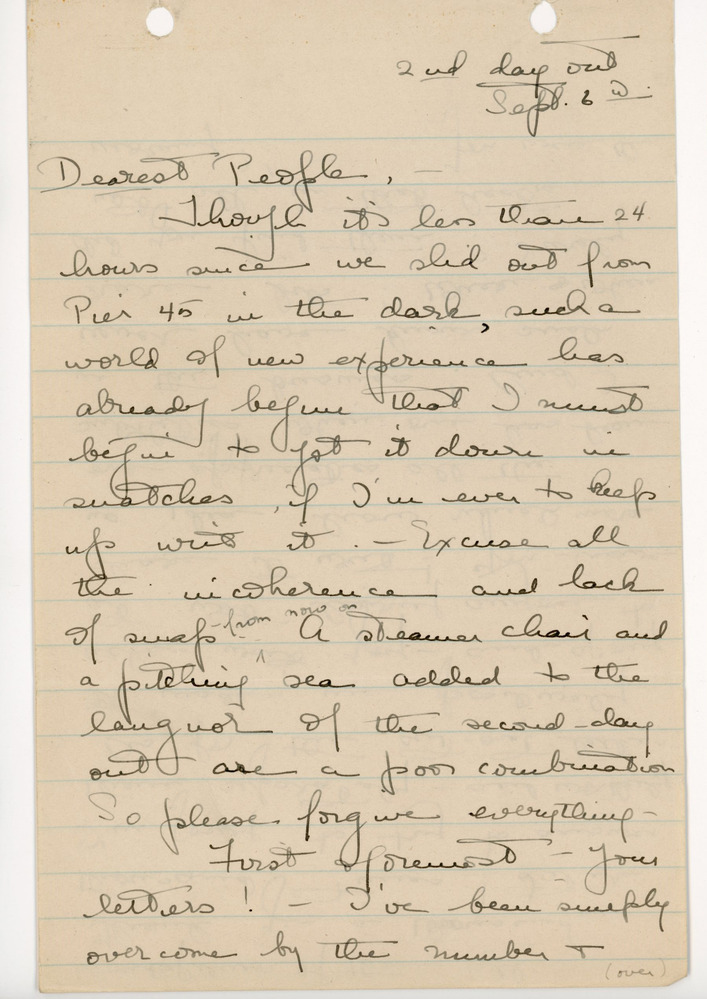 2nd day out
Sept. 6th.
Dearest People, —
Though it's less than 24
hours since we slid out from
Pier 45 in the dark, such a
world of new experience has
already begun that I must
begin to jot it down in
snatches, if I'm ever to keep
up with it. — Excuse all
the incoherence and lack
of snap - from now on A steamer chair and
a pitching sea added to the
languor of the second-day
out are a poor combination
So please forgive everything —
First & foremost — your
letters! — I've been simply
overcome by the number +
(over)